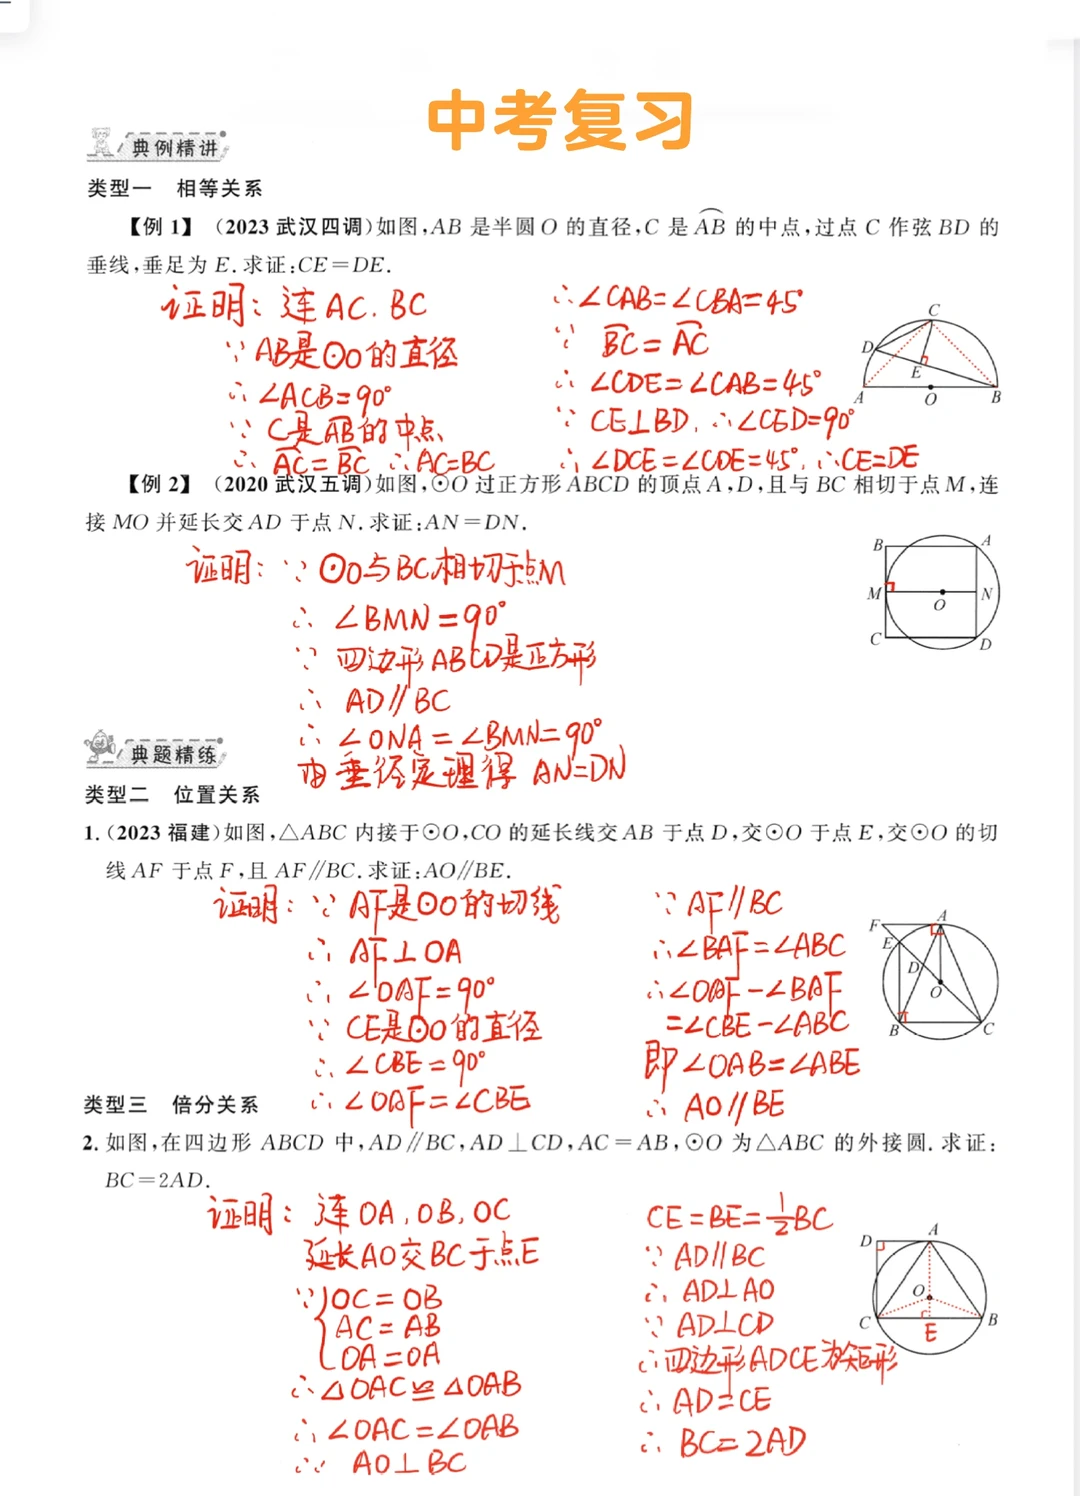 中考复习
典例精讲
类型一 相等关系
【例 1】 (2023 武汉四调)如图,AB 是半圆 O 的直径,C 是 A͡B 的中点,过点 C 作弦 BD 的
垂线,垂足为 E.求证:CE=DE.
证明: 连 AC. BC
∵ AB是⊙O的直径
∴ ∠ACB=90°
∵ C是A͡B的中点
∴ A͡C=B͡C ∴AC=BC
∴∠CAB=∠CBA=45°
∵ B͡C=A͡C
∴ ∠CDE=∠CAB=45°
∵ CE⊥BD, ∴∠CED=90°
∴ ∠DCE=∠CDE=45°, ∴CE=DE
C
D
E
A
O
B
【例 2】 (2020 武汉五调)如图,⊙O 过正方形 ABCD 的顶点 A,D,且与 BC 相切于点 M,连
接 MO 并延长交 AD 于点 N.求证:AN=DN.
证明: ∵ ⊙O与BC相切于点M
∴ ∠BMN=90°
∵ 四边形ABCD是正方形
∴ AD∥BC
∴ ∠ONA=∠BMN=90°
由垂径定理得 AN=DN
B
A
M
O
N
C
D
典题精练
类型二 位置关系
1.(2023 福建)如图,△ABC 内接于⊙O,CO 的延长线交 AB 于点 D,交⊙O 于点 E,交⊙O 的切
线 AF 于点 F,且 AF∥BC.求证:AO∥BE.
证明: ∵ AF是⊙O的切线
∴ AF⊥OA
∴ ∠OAF=90°
∵ CE是⊙O的直径
∴ ∠CBE=90°
∴ ∠OAF=∠CBE
∵ AF∥BC
∴∠BAF=∠ABC
∴∠OAF-∠BAF
=∠CBE-∠ABC
即∠OAB=∠ABE
∴ AO∥BE
F
A
E
D
O
B
C
类型三 倍分关系
2.如图,在四边形 ABCD 中,AD∥BC,AD⊥CD,AC=AB,⊙O 为△ABC 的外接圆.求证:
BC=2AD.
证明: 连OA, OB, OC
延长AO交BC于点E
∵ OC=OB
AC=AB
OA=OA
∴△OAC≌△OAB
∴ ∠OAC=∠OAB
∴ AO⊥BC
CE=BE=½BC
∵ AD∥BC
∴ AD⊥AO
∵ AD⊥CD
∴四边形ADCE为矩形
∴ AD=CE
∴ BC=2AD
A
D
O
C
E
B